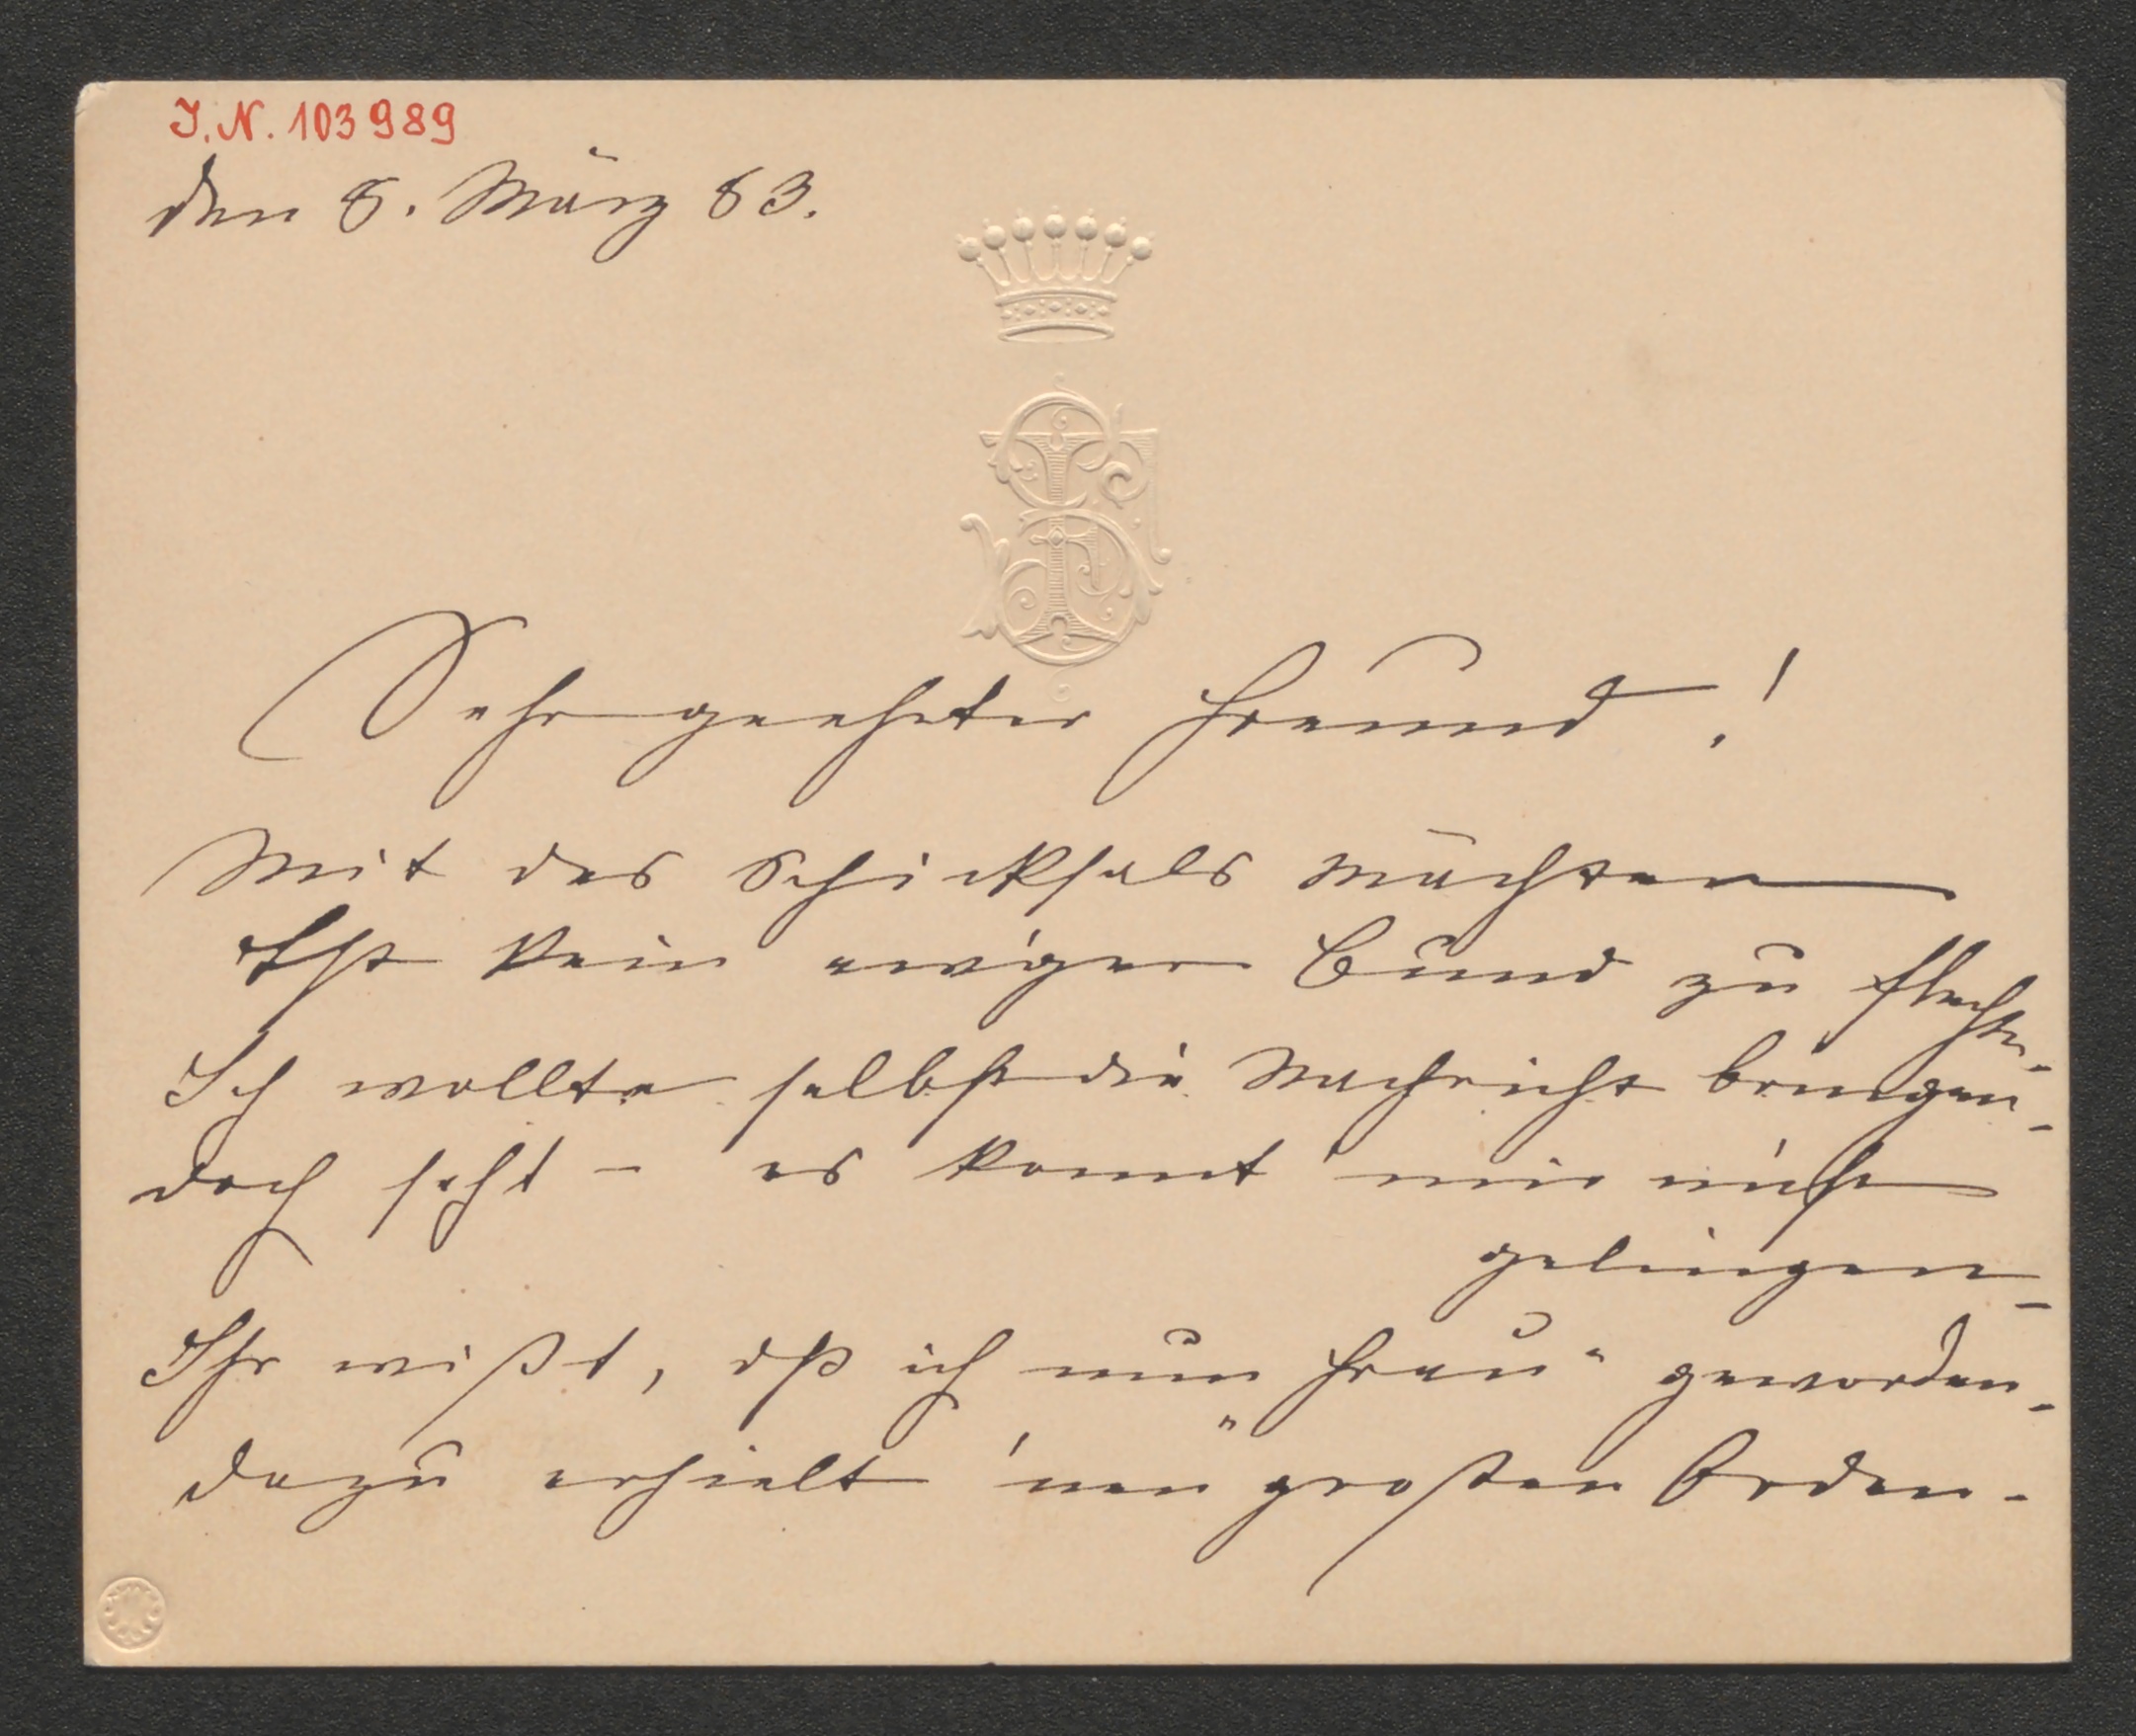 I.N. 103989
den 8. März 83.
Sehr geehrter Freund!
Mit des Schicksals Mächten
Ist kein ewiger Bund zu flechten.
Ich wollte selbst die Nachricht bringen-
doch seht - es konnt' mir nicht
gelingen-
Ihr wißt, dß ich nun „Frau“ geworden-
dazu erhielt 'nen großen Orden.